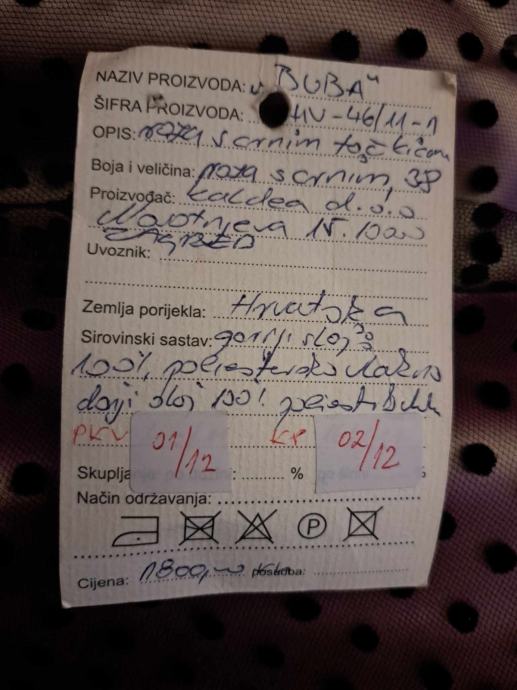 NAZIV PROIZVODA: „BUBA“
ŠIFRA PROIZVODA: HV-46/11-1
OPIS: roza s crnim točkicama
Boja i veličina: roza s crnim, 38
Proizvođač: Kaldea d.o.o
Novotnijeva 15. 10000
ZAGREB
Uvoznik:
Zemlja porijekla: Hrvatska
Sirovinski sastav: gornji sloj
100% poliestersko vlakno
donji sloj 100%
PKV 01/12 KP 02/12
Skuplja %
Način održavanja:
P
Cijena: 1800,00 kn posudba: